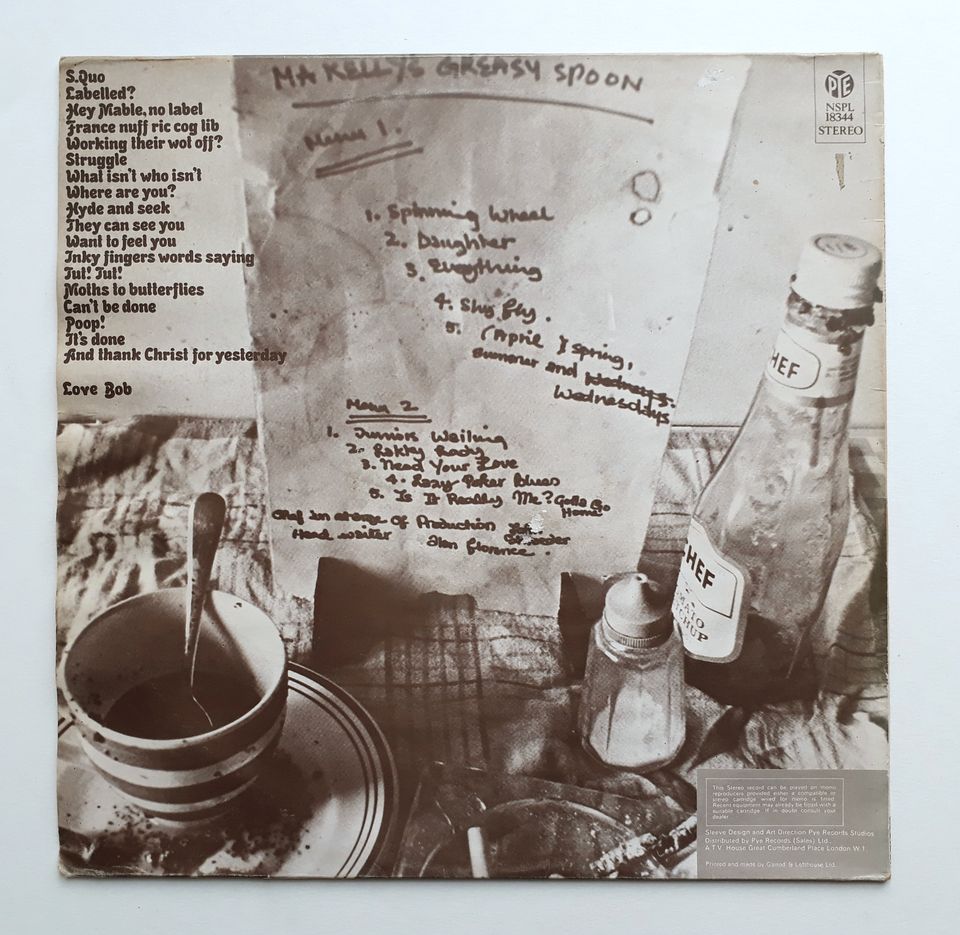 S.Quo
Labelled?
Hey Mable, no label
France nuff ric cog lib
Working their wot off?
Struggle
What isn't who isn't
Where are you?
Hyde and seek
They can see you
Want to feel you
Inky fingers words saying
Tut! Tut!
Moths to butterflies
Can't be done
Poop!
It's done
And thank Christ for yesterday
Love Bob
MA KELLYS GREASY SPOON
Menu 1.
1. Spinning Wheel
2. Daughter
3. Everything
4. Shy fly.
5. (April) Spring,
Summer and Wednesdays
Menu 2
1. Juniors Wailing
2. Lakky Lady
3. Need Your Love
4. Lazy Poker Blues
5. Is It Really Me? Gotta Go
Home
Chef in charge Of Production
Head waiter Alan Florence.
PYE
NSPL
18344
STEREO
HEF
HEF
MATO
CHUP
This Stereo record can be played on mono
reproducers provided either a compatible or
stereo cartridge wired for mono is fitted.
Recent equipment may already be fitted with a
suitable cartridge. If in doubt consult your
dealer.
Sleeve Design and Art Direction Pye Records Studios
Distributed by Pye Records (Sales) Ltd.,
A.T.V. House Great Cumberland Place London W.1.
Printed and made by Garrod & Lofthouse Ltd.